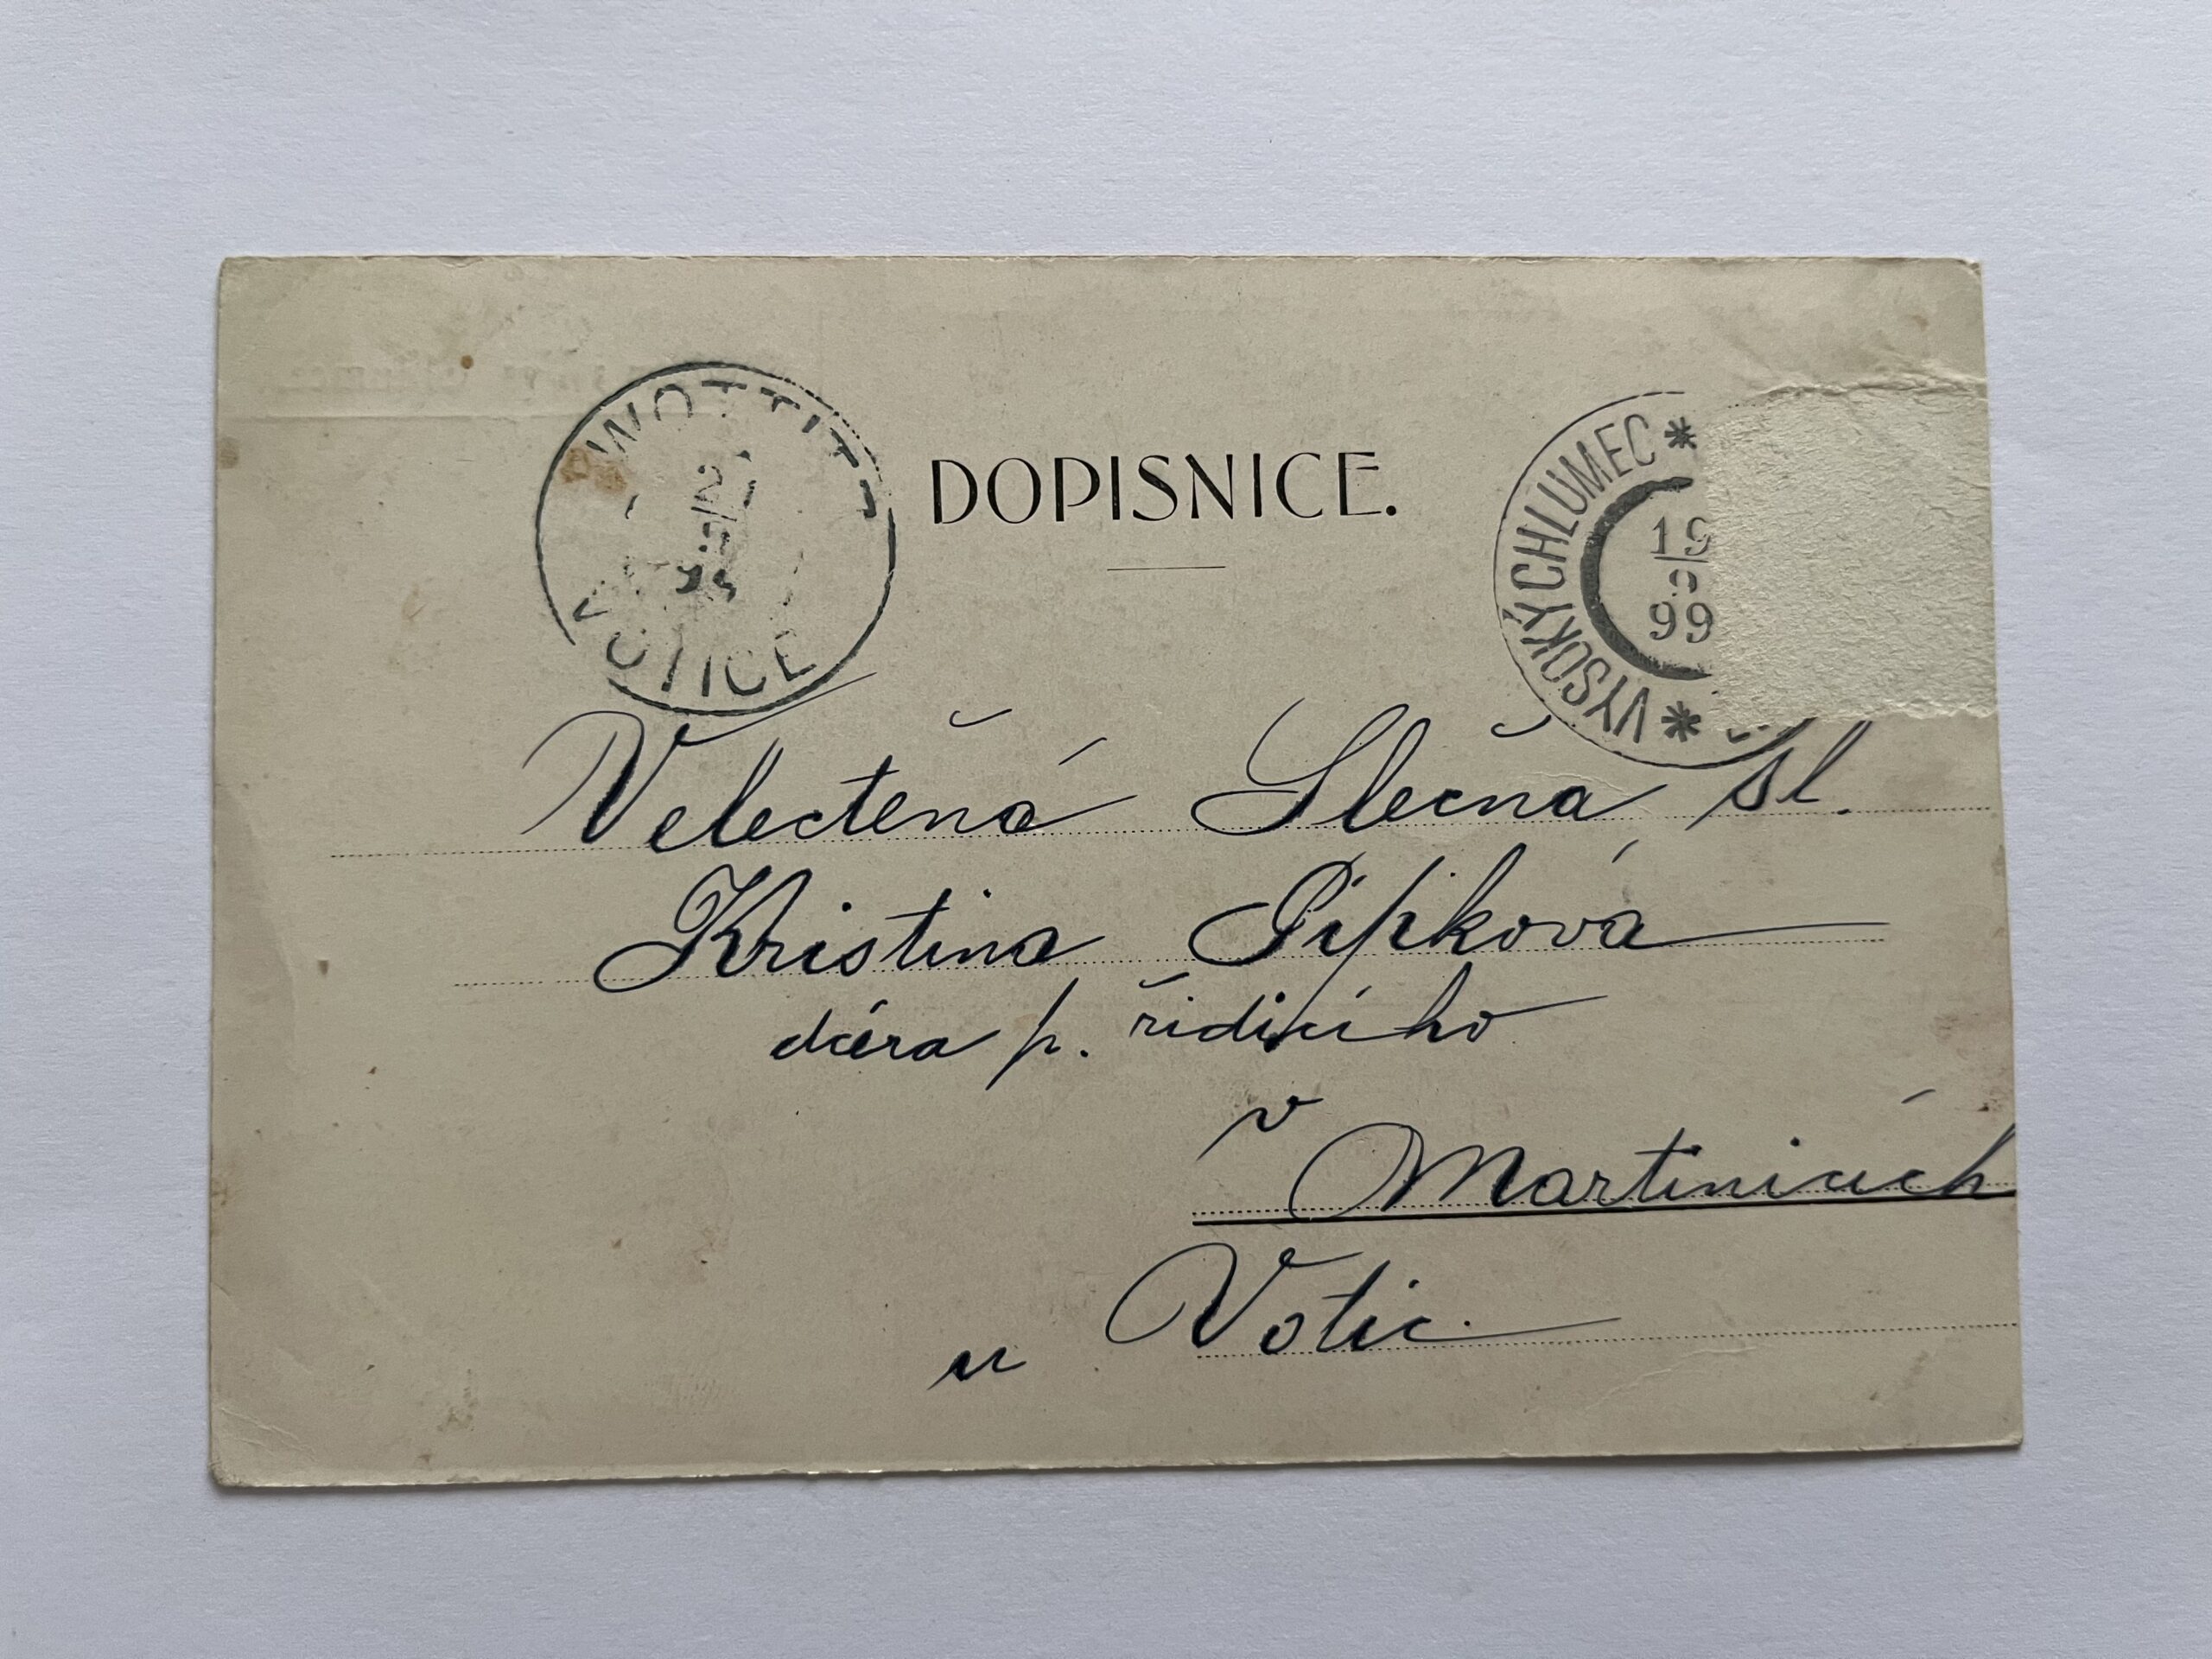 WOTTITZ
VOTICE
DOPISNICE.
VYSOKÝ CHLUMEC
99
Velectěná Slečna, sl.
Kristina Pípková
dcéra p. řídicího
v Martinicích
u Votic.